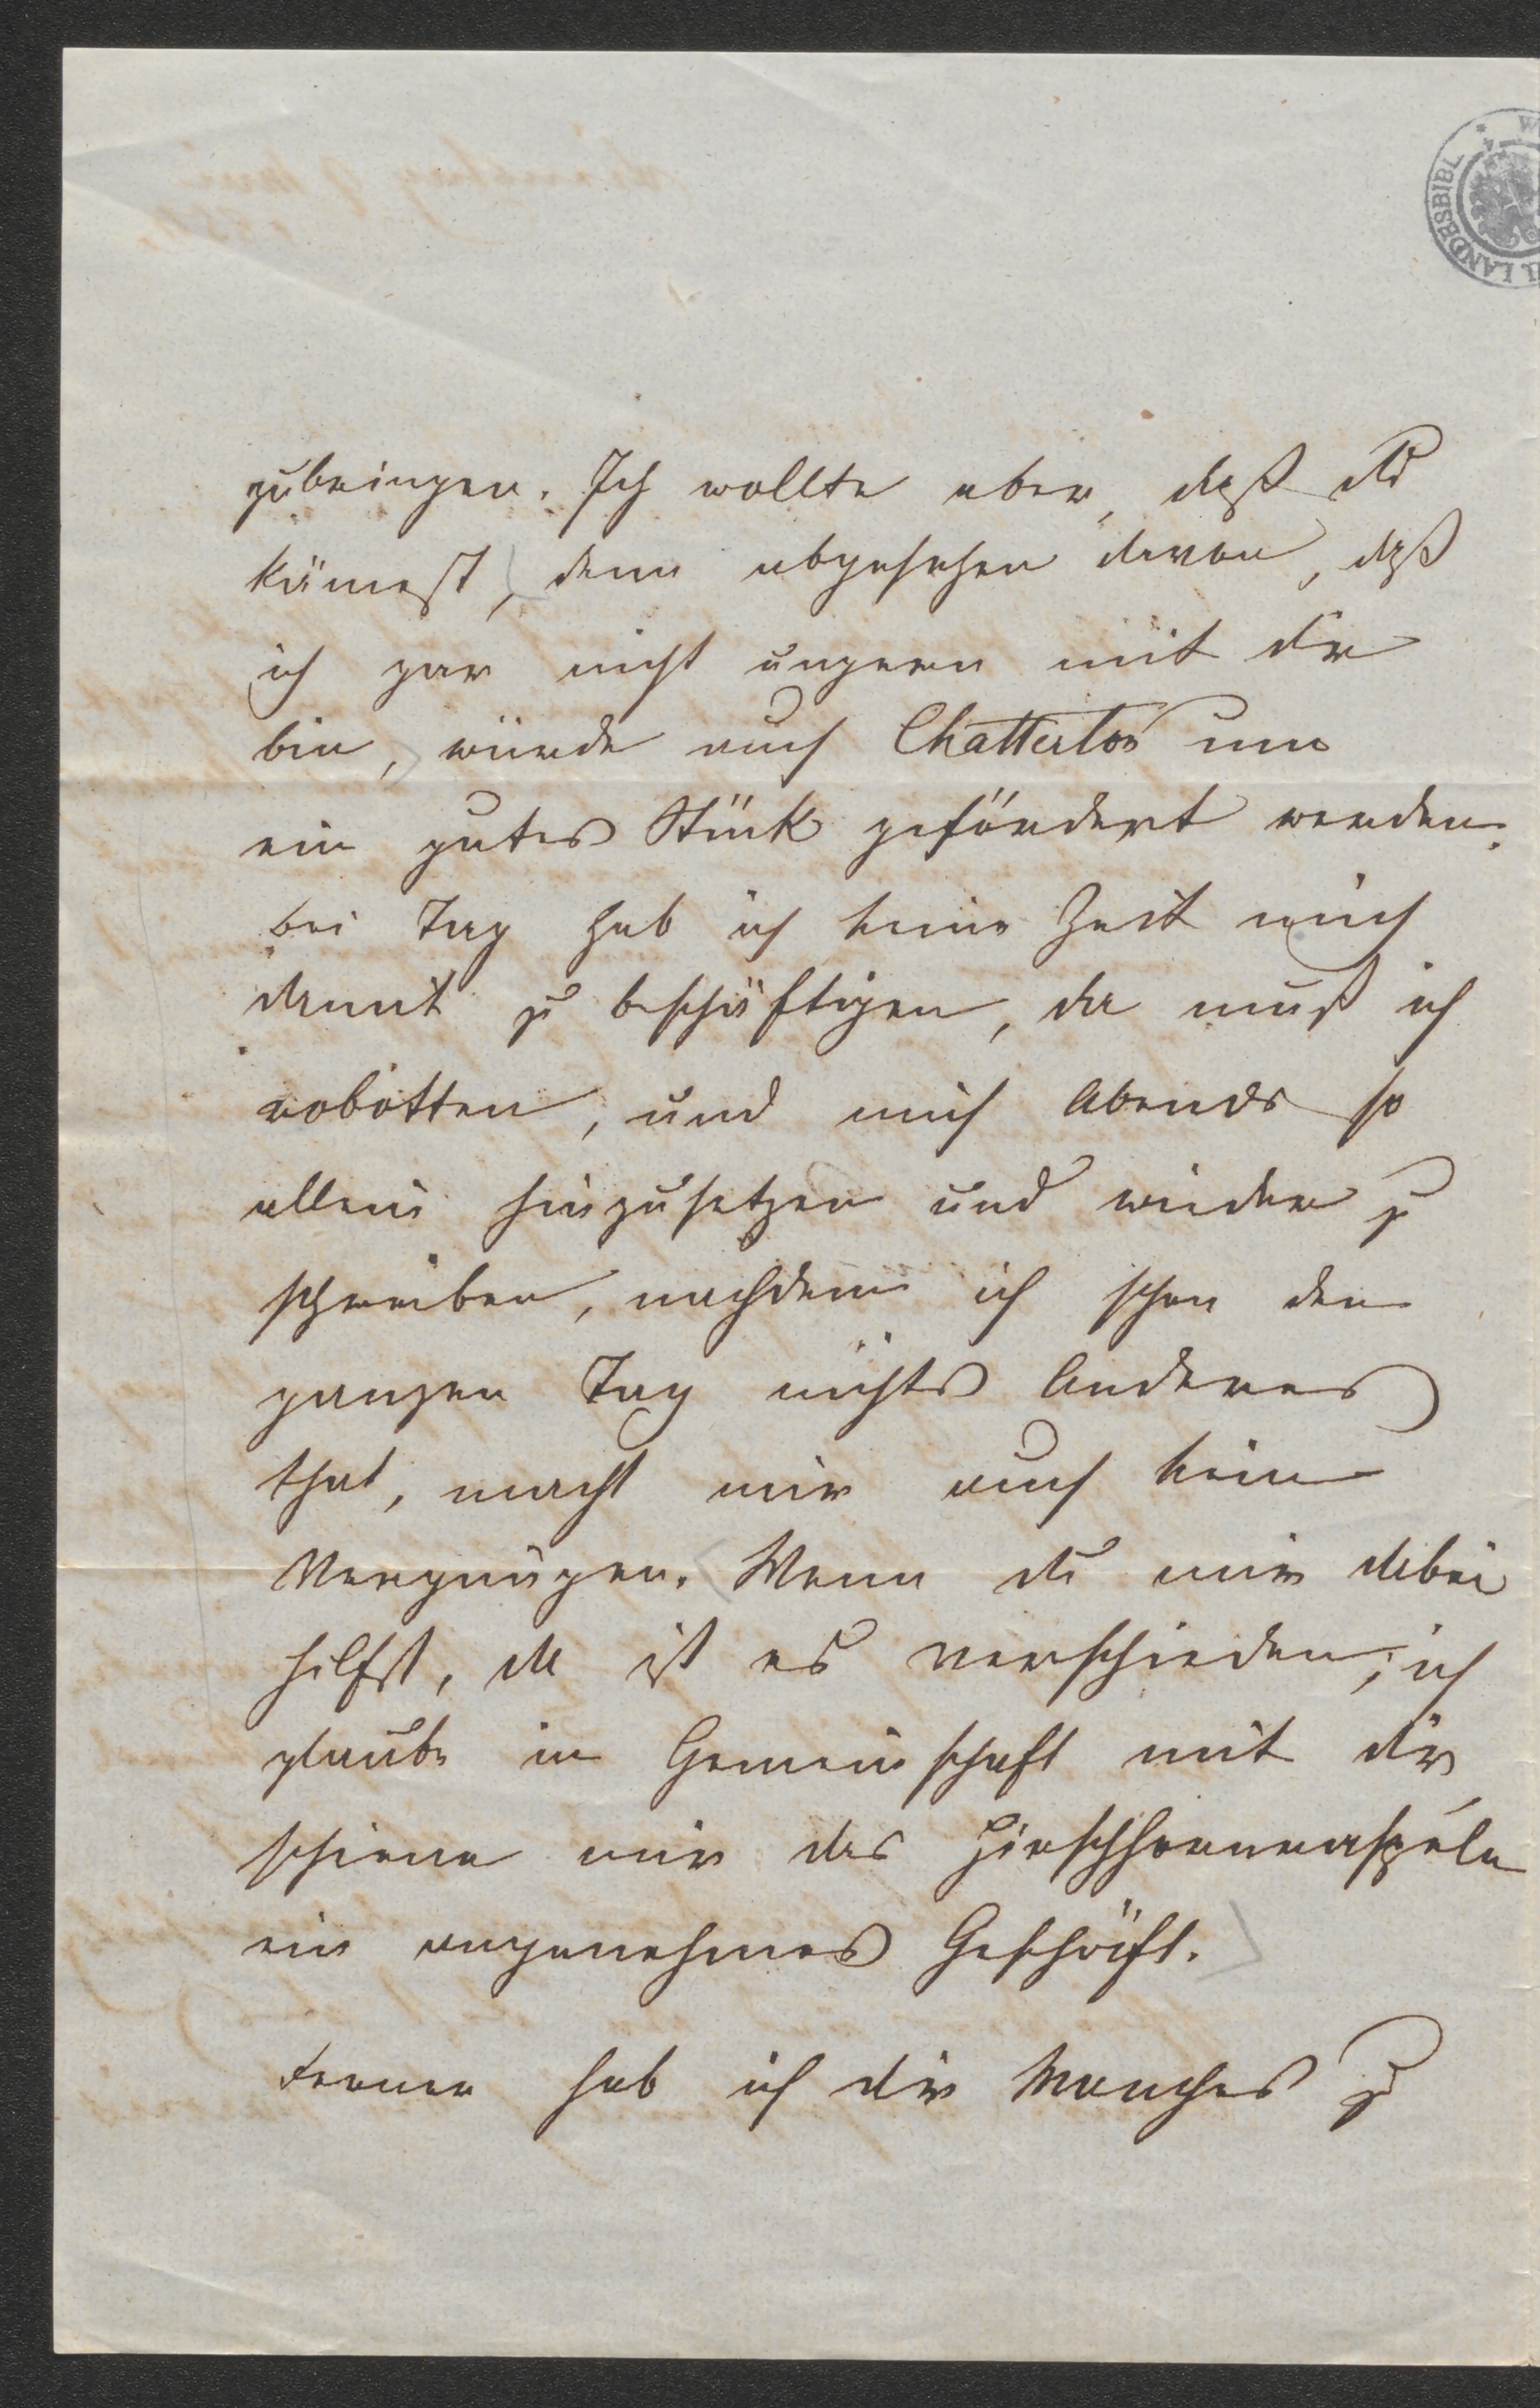 W
LANDESBIBL
zubringen. Ich wollte aber, daß du
kämest, denn abgesehen davon, daß
ich gar nicht ungern mit dir
bin, würde auch Chatterton um
ein gutes Stück gefördert werden.
bei Tag hab ich keine Zeit mich
damit zu beschäftigen, da muß ich
robotten, und mich Abends so
allein hinzusetzen und wieder zu
schreiben, nachdem ich schon den
ganzen Tag nichts Anderes
that, macht mir auch kein
Vergnügen. Wenn du mir dabei
hilfst, da ist es verschieden; ich
glaube in Gemeinschaft mit dir
schiene mir das Hirschhornraspeln
ein angenehmes Geschäft.
Ferner hab ich dir Manches zu